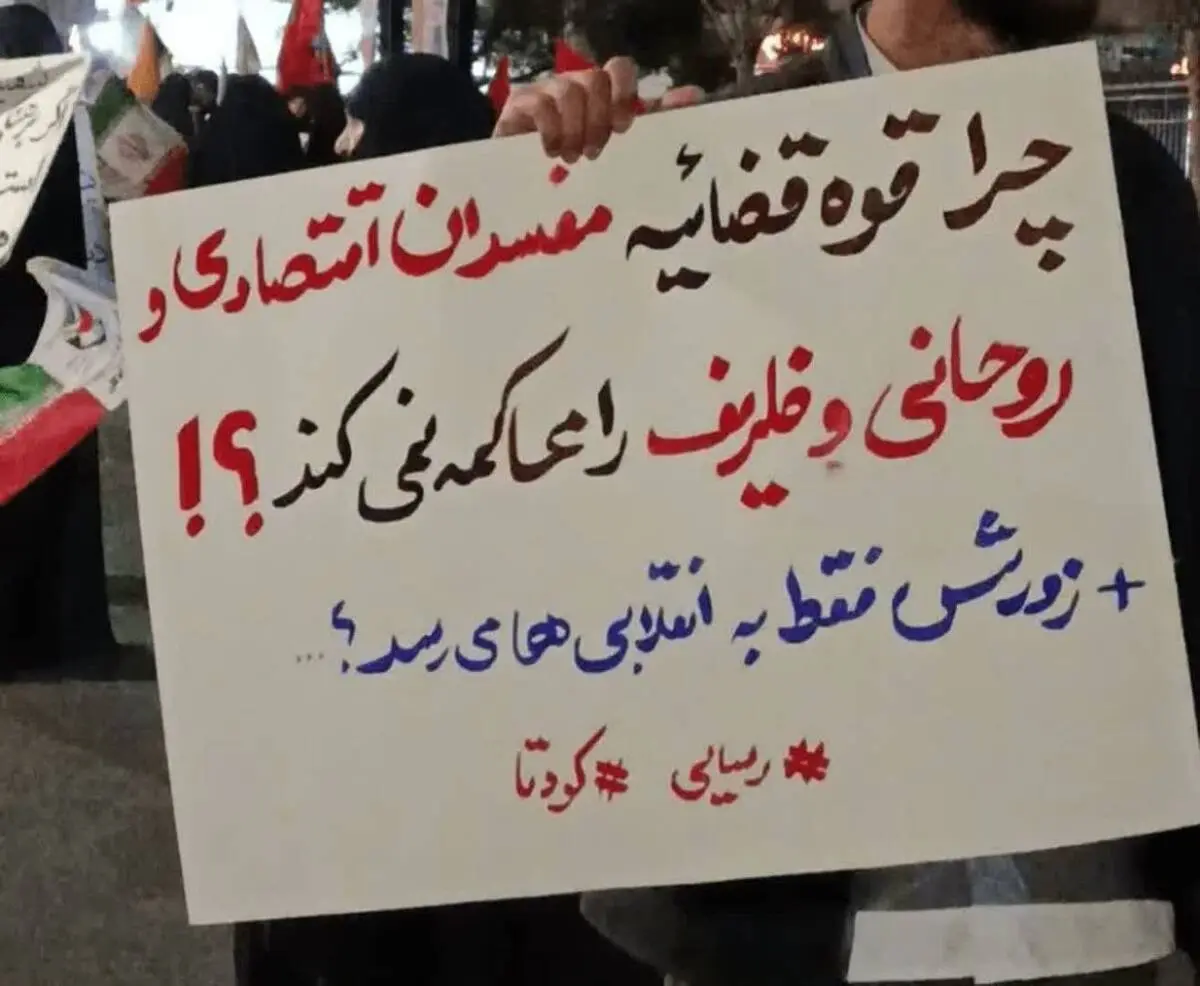 چرا قوه قضائیه مفسدان اقتصادی و
روحانی و ظریف را محاکمه نمی کند؟!
+ زورش فقط به انقلابی ها می رسد؟...
#رسایی #کودتا